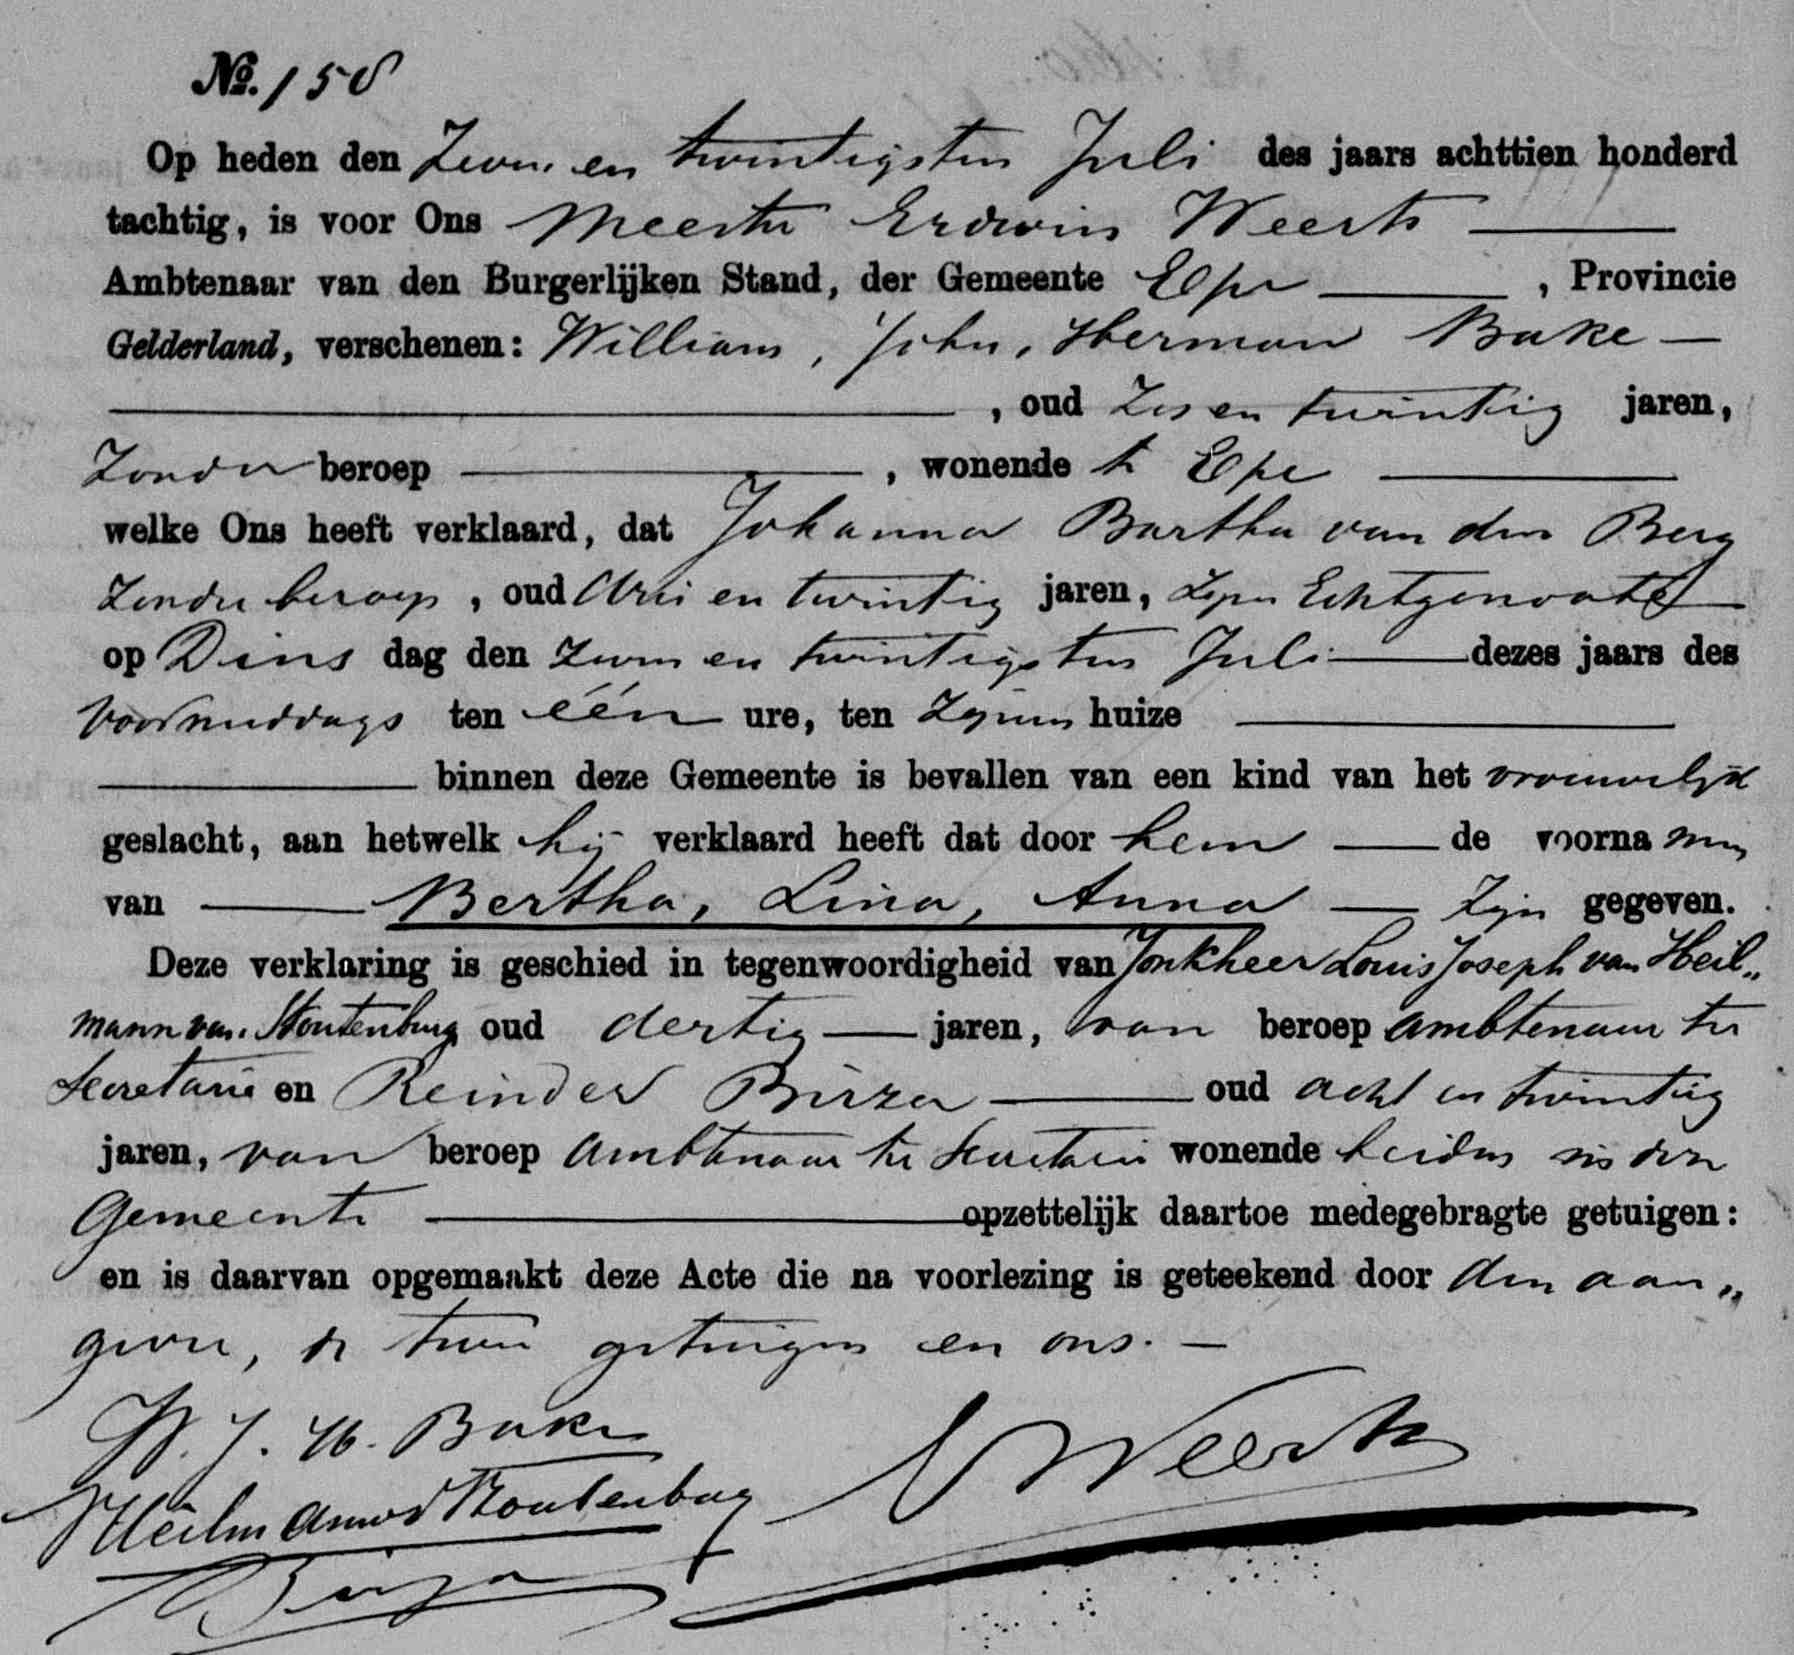 No. 158
Op heden den Zeven en twintigsten Juli des jaars achttien honderd
tachtig, is voor Ons Meester Erdwin Weerts
Ambtenaar van den Burgerlijken Stand, der Gemeente Epe, Provincie
Gelderland, verschenen: William, John, Herman Bake
, oud Zes en twintig jaren,
Zonder beroep, wonende te Epe
welke Ons heeft verklaard, dat Johanna Bartha van den Berg
Zonder beroep, oud drie en twintig jaren, Zijne Echtgenoote
op Dins dag den zeven en twintigsten Juli dezes jaars des
Voormiddags ten één ure, ten Zijnen huize
binnen deze Gemeente is bevallen van een kind van het vrouwelijk
geslacht, aan hetwelk hij verklaard heeft dat door hem de voorna men
van Bertha, Lina, Anna Zijn gegeven.
Deze verklaring is geschied in tegenwoordigheid van Jonkheer Louis Joseph van Heil„
mann van Stoutenburg oud dertig jaren, van beroep ambtenaar ter
Secretarie en Reinder Birza oud acht en twintig
jaren, van beroep ambtenaar ter Secretarie wonende beiden in deze
Gemeente opzettelijk daartoe medegebragte getuigen:
en is daarvan opgemaakt deze Acte die na voorlezing is geteekend door den aan„
gever, de twee getuigen en ons.
W. J. H. Bake
Heilmann v Stoutenburg
Weerts
Birza